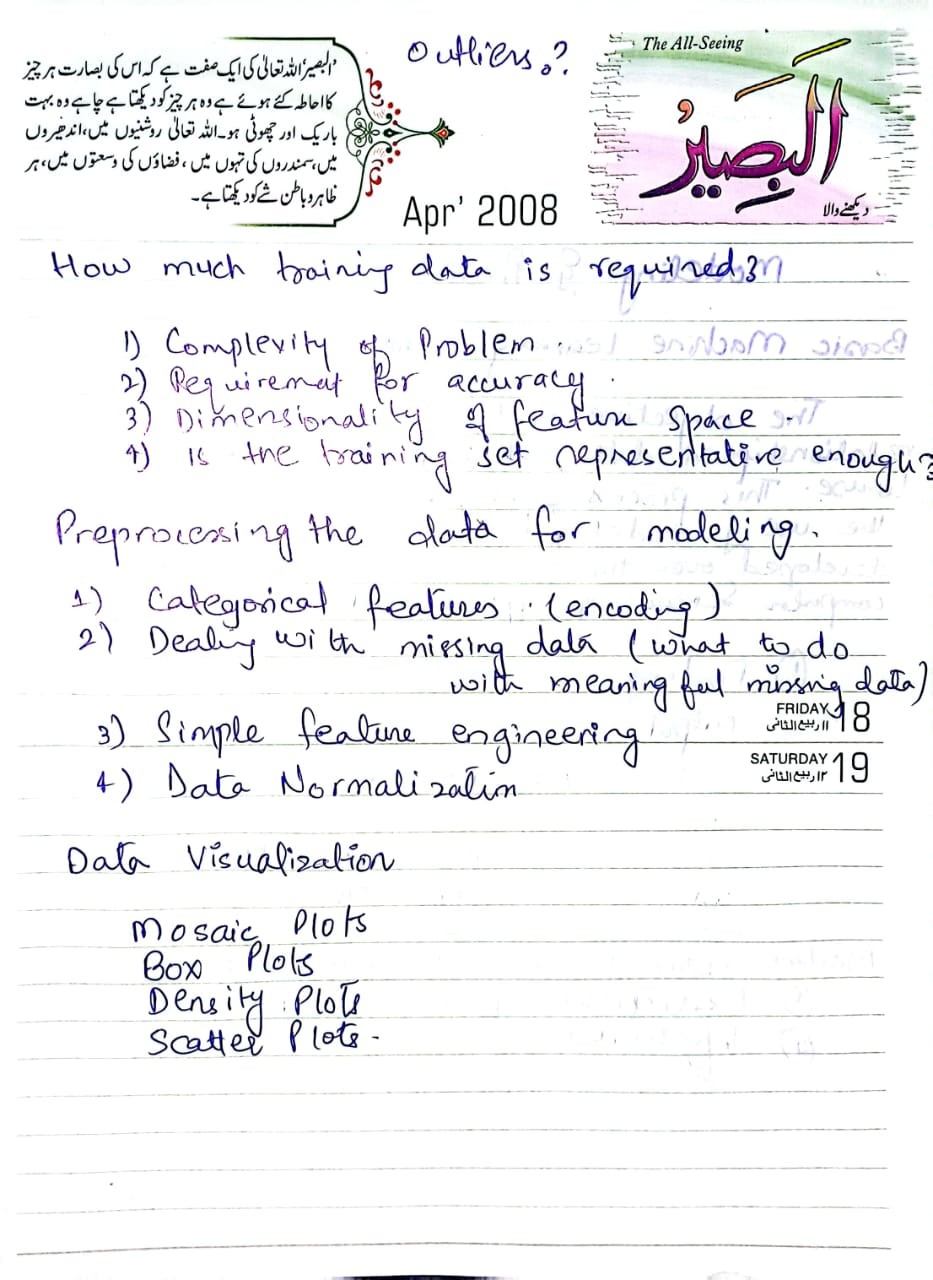 outliers.?
The All-Seeing
'البصیر' اللہ تعالیٰ کی ایک صفت ہے کہ اس کی بصارت ہر چیز
کا احاطہ کئے ہوئے ہے وہ ہر چیز کو دیکھتا ہے چاہے وہ بہت
باریک اور چھوٹی ہو۔ اللہ تعالیٰ روشنیوں میں، اندھیروں
میں، سمندروں کی تہوں میں، فضاؤں کی وسعتوں میں، ہر
ظاہر و باطن شے کو دیکھتا ہے۔
البصیر
دیکھنے والا
Apr' 2008
How much training data is required?
1) Complexity of Problem.
2) Requiremet for accuracy.
3) Dimensionality of feature space.
4) is the training set representative enough?
Preprocessing the data for modeling.
1) Categorical features. (encoding)
2) Dealing with missing data (what to do
with meaningful missing data)
FRIDAY 18
۱۱ ربیع الثانی
3) Simple feature engineering
SATURDAY 19
۱۲ ربیع الثانی
4) Data Normalization
Data Visualization
Mosaic Plots
Box Plots
Density Plots
Scatter Plots.